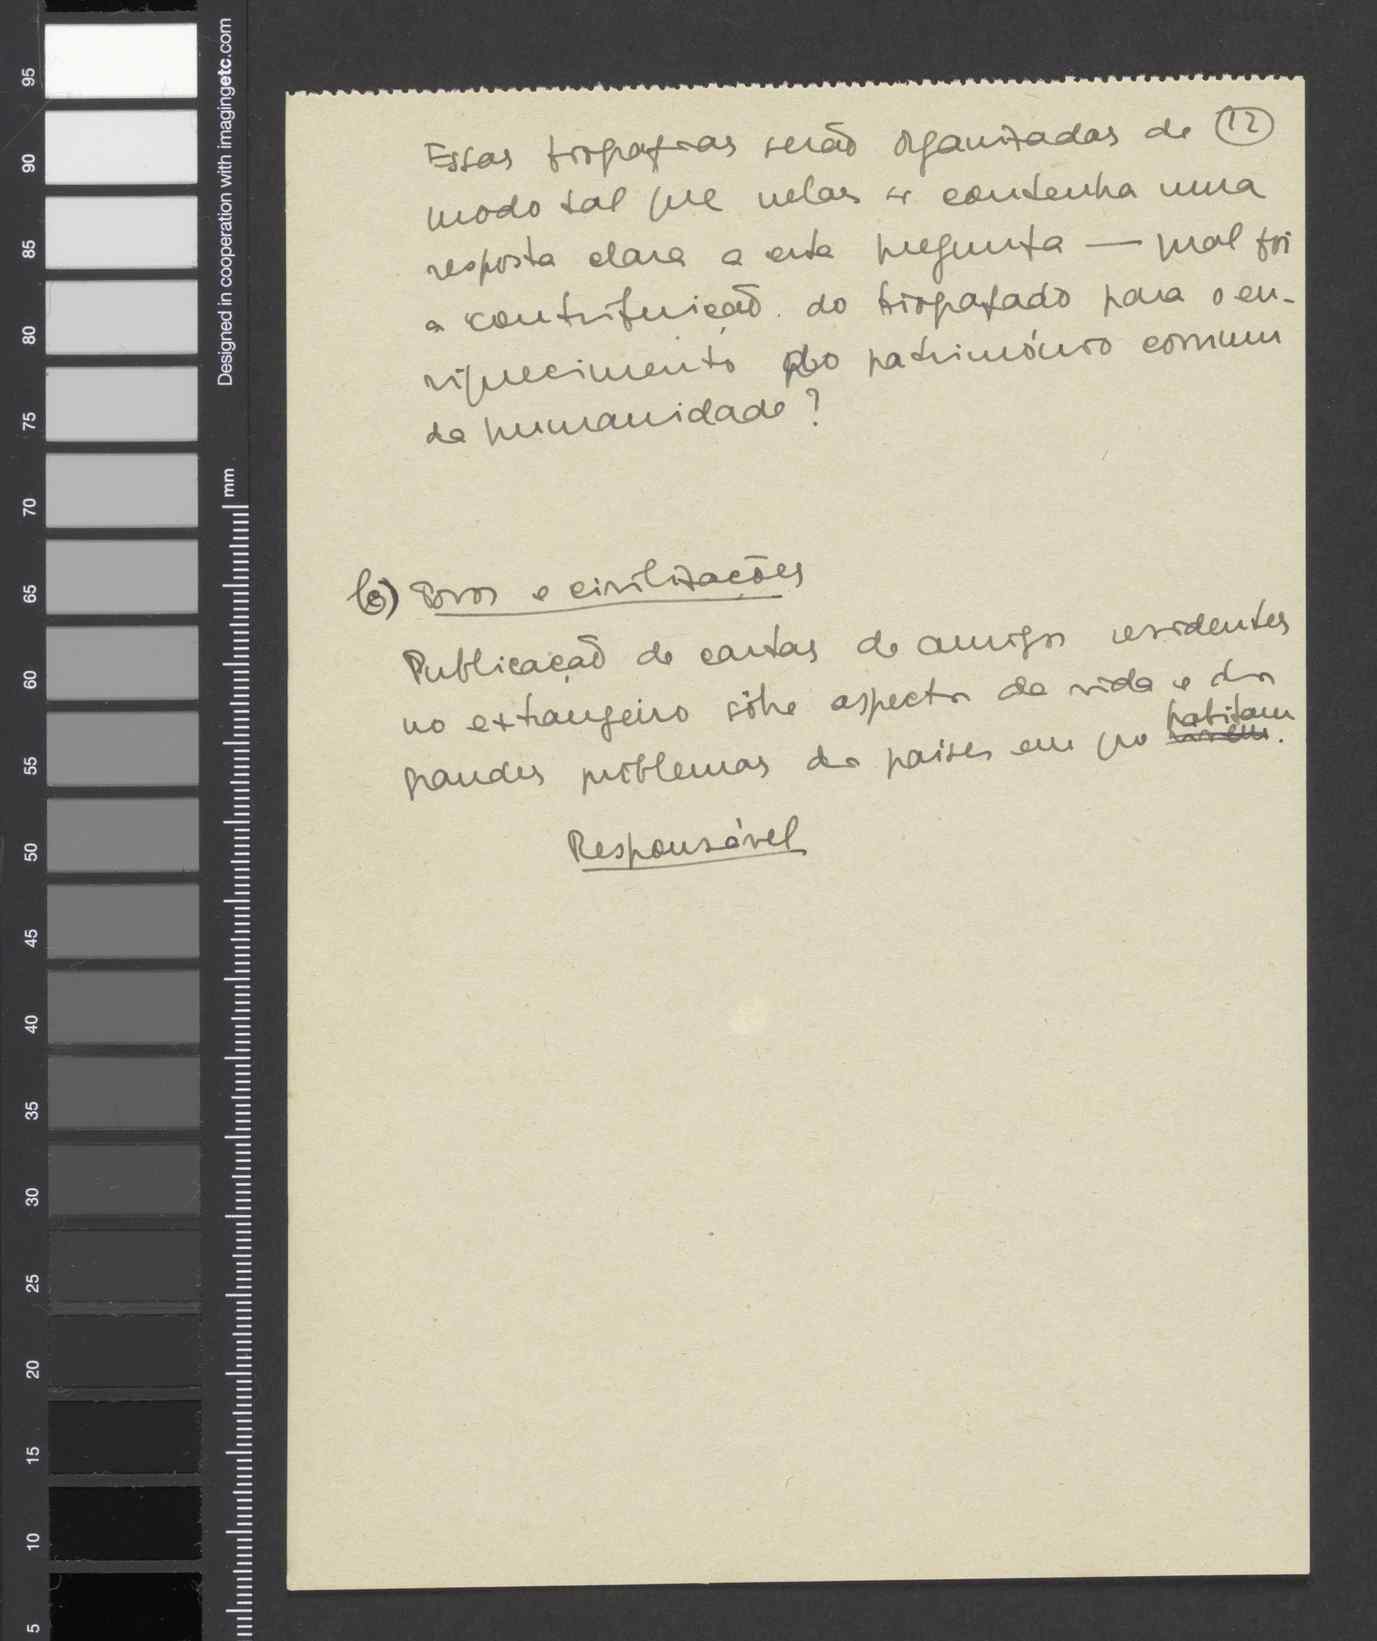 Essas biografias serão organizadas de (12)
modo tal que nelas se contenha uma
resposta clara a esta pregunta — qual foi
a contribuição do biografado para o en-
riquecimento do património comum
da humanidade?
b) Povos e civilizações
Publicação de cartas de amigos residentes
no extrangeiro sôbre aspectos da vida e dos
habitam
grandes problemas dos paises em que vivem.
Responsável
Designed in cooperation with imagingetc.com
mm
95
90
85
80
75
70
65
60
55
50
45
40
35
30
25
20
15
10
5